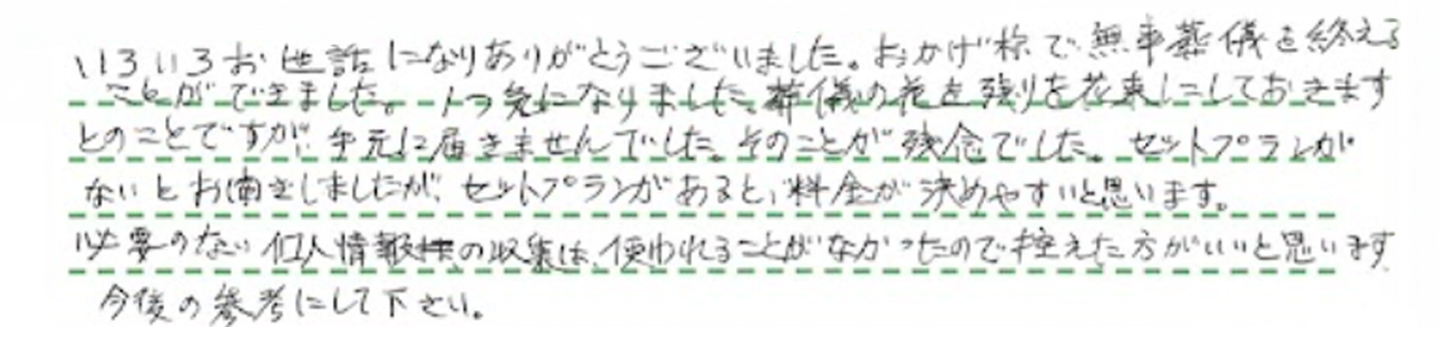 いろいろお世話になりありがとうございました。おかげ様で無事葬儀を終える
ことができました。1つ気になりました、葬儀の花を残りを花束にしておきます
とのことですが、手元に届きませんでした。そのことが残念でした。セットプランが
ないとお聞きしましたが、セットプランがあると、料金が決めやすいと思います。
必要のない個人情報の収集は、使われることがなかったので控えた方がいいと思います
今後の参考にして下さい。